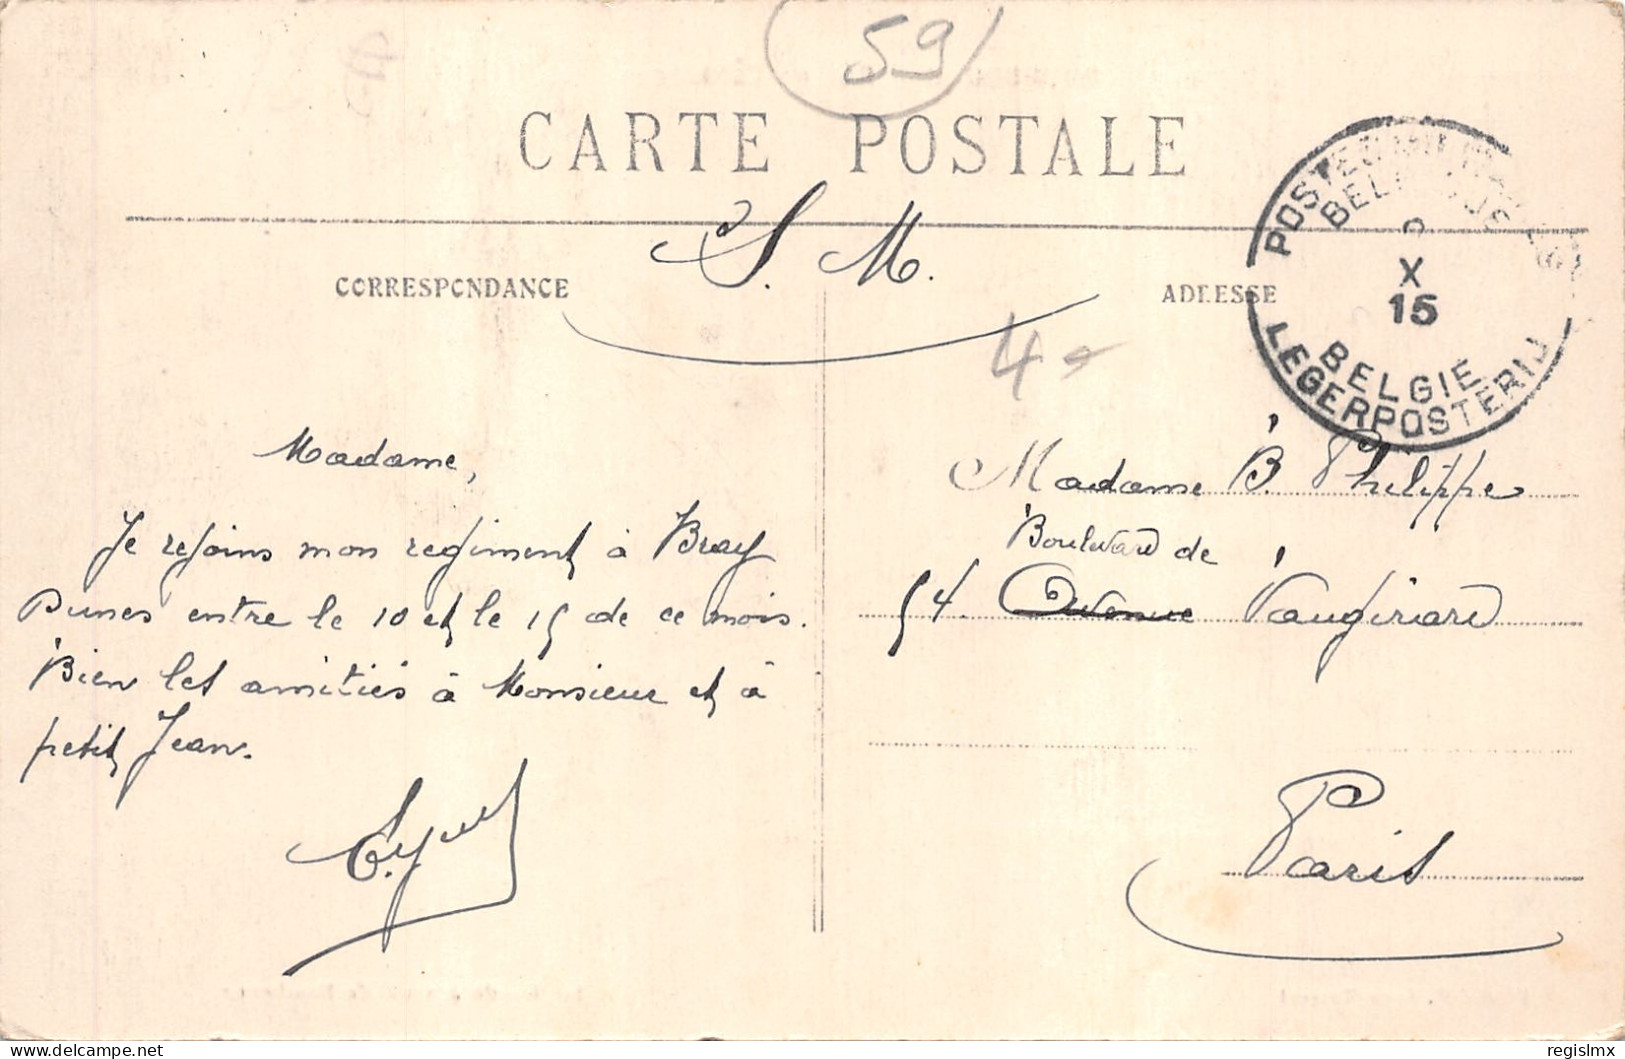 59
CARTE POSTALE
S. M.
CORRESPONDANCE
ADRESSE
POSTES MILITAIRES
BELGIQUE
X
15
BELGIE
LEGERPOSTERIJ
4
Madame,
Je rejoins mon regiment à Bray
Dunes entre le 10 et le 15 de ce mois.
Bien les amitiés à Monsieur et à
petit Jean.
Madame B. Philippe
Boulevard de
54. Avenue Vaugirard
Paris
delcampe.net
regislmx